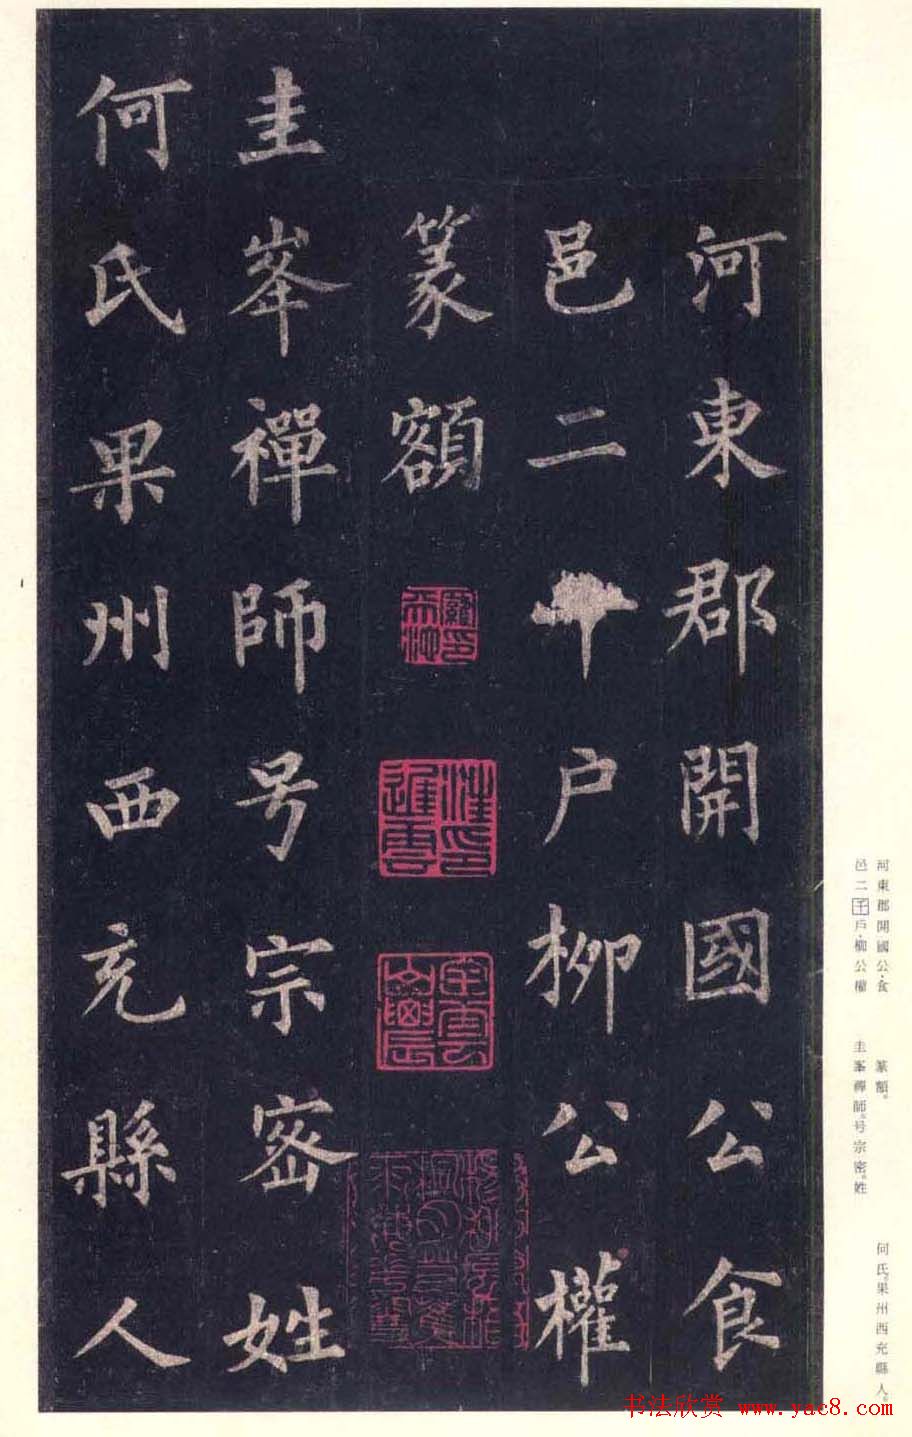 河東郡開國公食
邑二千户柳公權
篆額
圭峯禪師号宗密姓
何氏果州西充縣人
河東郡開國公·食
邑二千戶·柳公權
篆額。
圭峯禪師。号宗密。姓
何氏。果州西充縣人。
书法欣赏 www.yac8.com